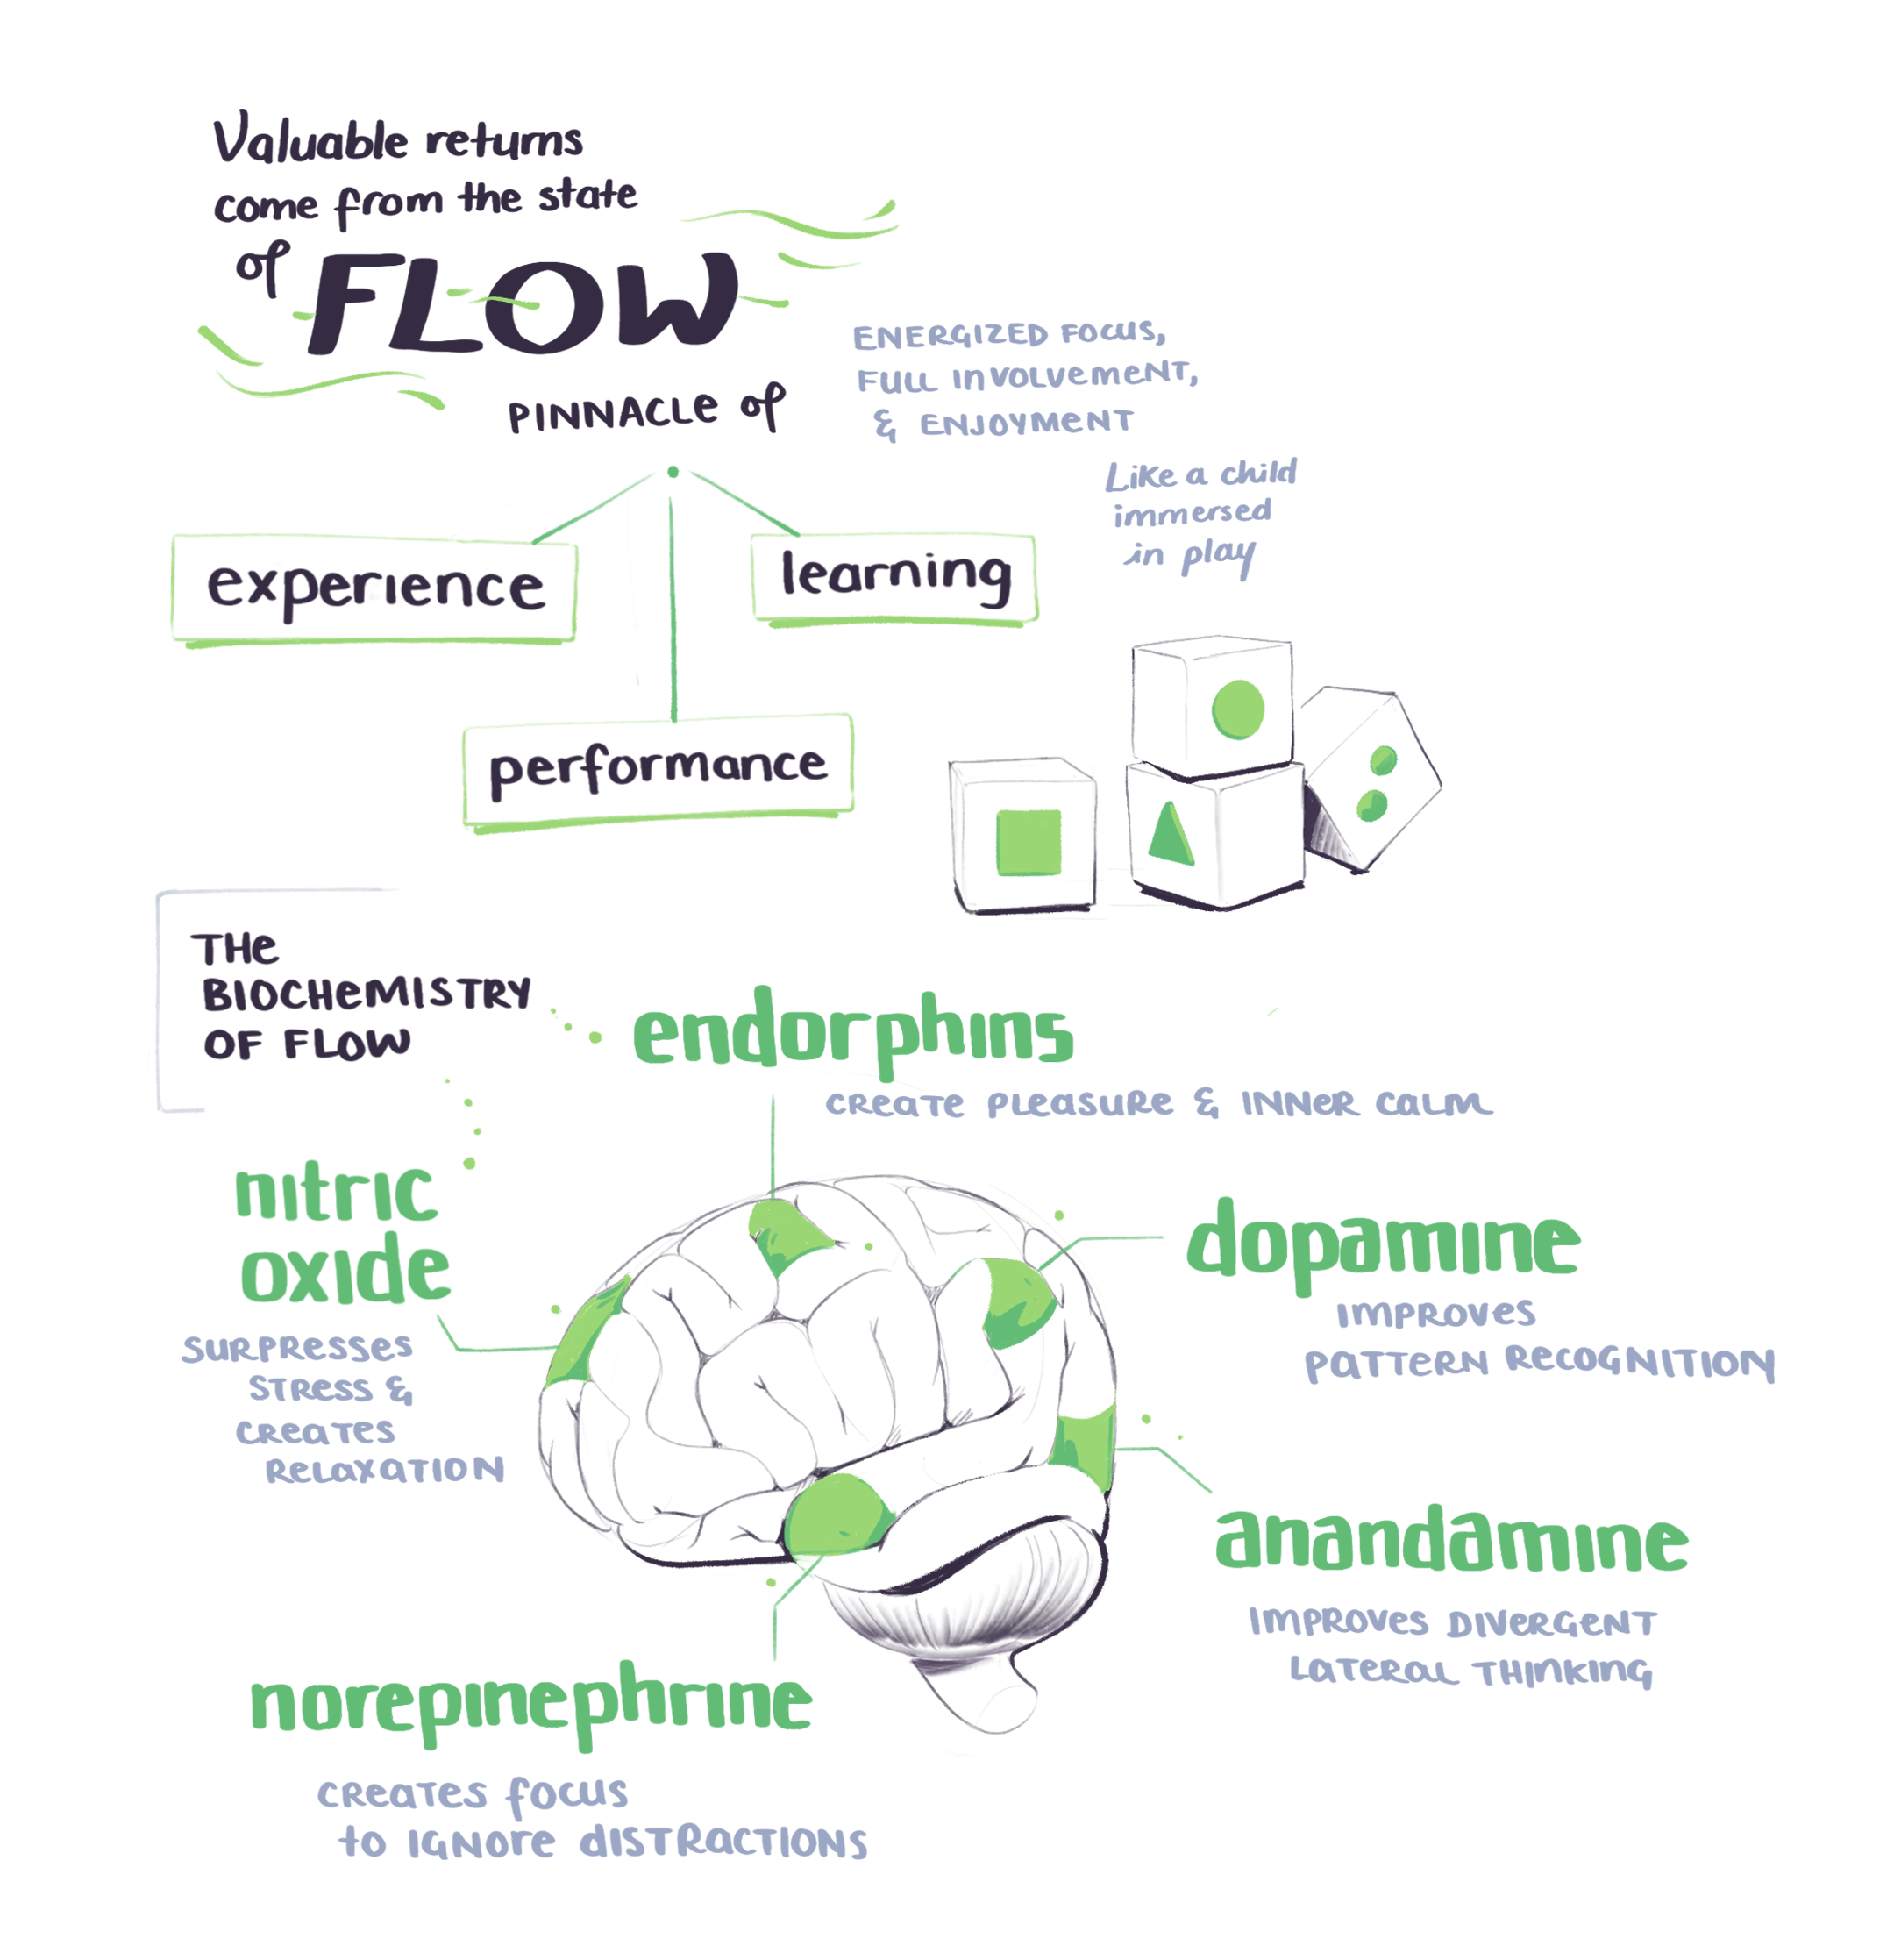 Valuable returns
come from the state
of FLOW
PINNACLE of
ENERGIZED FOCUS,
FULL INVOLVEMENT,
& ENJOYMENT
Like a child
immersed
in play
experience
learning
performance
THE
BIOCHEMISTRY
OF FLOW
endorphins
CREATE PLEASURE & INNER CALM
nitric
oxide
SURPRESSES
STRESS &
CREATES
RELAXATION
dopamine
IMPROVES
PATTERN RECOGNITION
anandamine
IMPROVES DIVERGENT
LATERAL THINKING
norepinephrine
CREATES focus
to IGNORE DISTRACTIONS